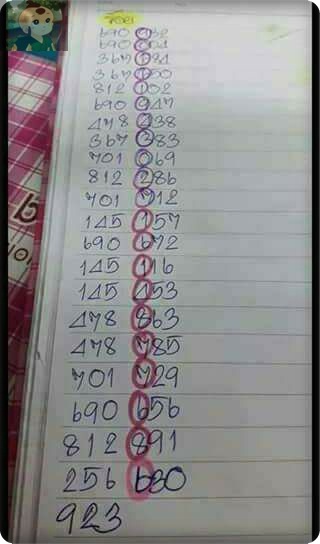 690 932
690 004
367 584
367 150
812 102
690 947
478 438
367 383
701 069
812 286
701 712
145 157
690 672
145 116
145 453
478 863
478 785
701 729
690 656
812 891
256 680
923